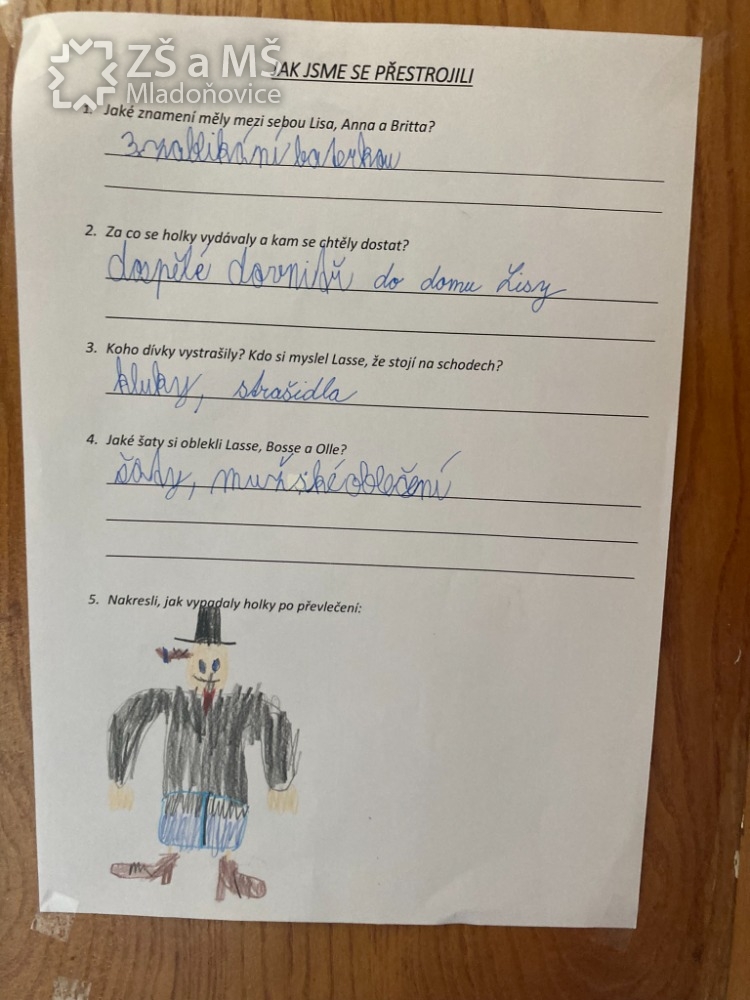 ZŠ a MŠ
Mladoňovice
JAK JSME SE PŘESTROJILI
1. Jaké znamení měly mezi sebou Lisa, Anna a Britta?
3 zablikání baterkou
2. Za co se holky vydávaly a kam se chtěly dostat?
dospělé do domu Lisy
3. Koho dívky vystrašily? Kdo si myslel Lasse, že stojí na schodech?
kluky, strašidla
4. Jaké šaty si oblekli Lasse, Bosse a Olle?
šaty, mužské oblečení
5. Nakresli, jak vypadaly holky po převlečení: